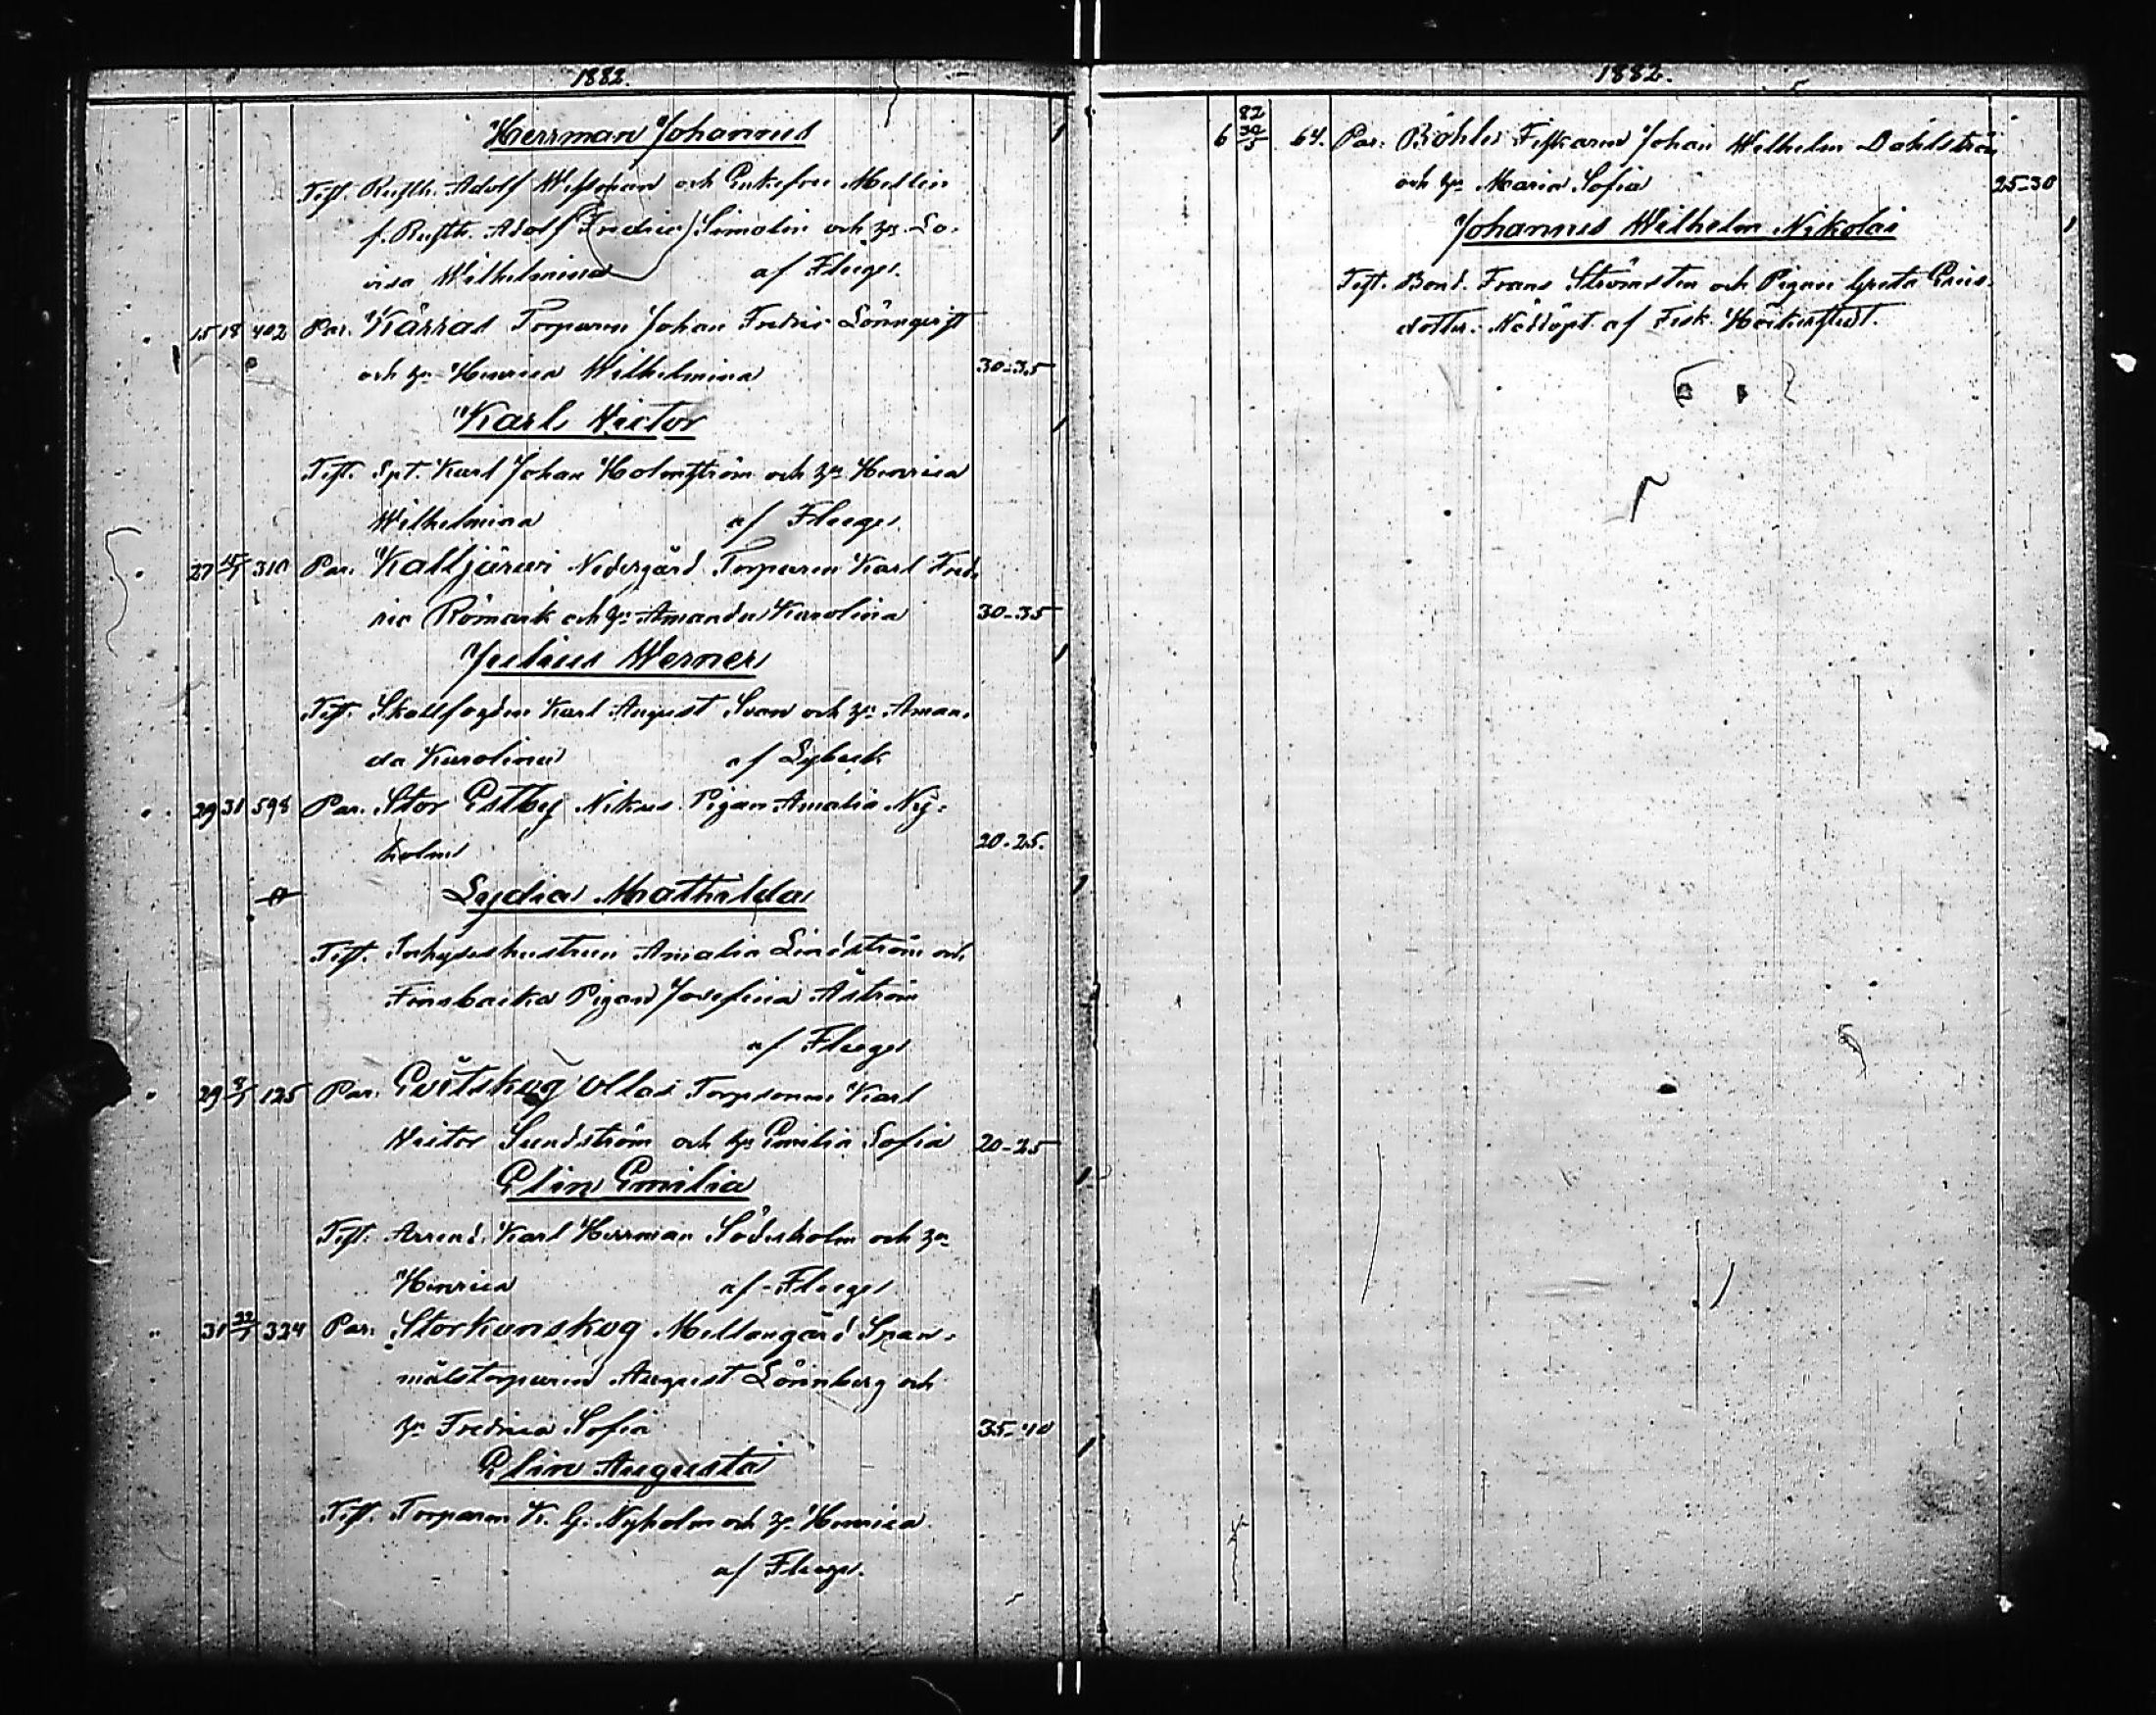 1882.
Herrman Johannes
Test. Rusth. Adolf och Enkefru Mellin
f. Rusth. Adolf Fredric Simolin och h:s Lo-
visa Wilhelmina af Fleege.
15 18 402 Par. Kärras Torparen Johan Fredric Lönnqvist
och h:s Henrica Wilhelmina 30-35
Karl Victor
Test. Spt. Karl Johan Holmström och h:s Henrica
Wilhelmina af Fleege.
27 310 Par. Kalljärvi Nedergård Torparen Karl Fred-
ric Römark och h:s Amanda Karolina 30-35
Julius Werner
Test. Skallfogden Karl August Svan och h:s Aman-
da Karolina af Lybeck
29 31 598 Par. Stor Estby Nikus Pigan Amalia Ny-
holm 20-25.
Lydia Mathilda
Test. Inhyseshustrun Amalia Lindström och
Finsbacka Pigan Josefina Åström
af Fleege
29 125 Par. Evitskog Ollas Torpsonen Karl
Victor Sundström och h:s Emilia Sofia 20-25
Elin Emilia
Test. Arrend. Karl Herrman Söderholm och h:s
Henrica af Fleege
31 324 Par. Storkanskog Mellangård Span-
målstorparen August Lönnberg och
h:s Fredrica Sofia 35-40
Elin Augusta
Test. Torparen K. G. Nyholm och h:s Henrica
af Fleege.
1882.
82
6 30/5 64. Par. Böhles Fiskaren Johan Wilhelm Dahlström
och h:s Maria Sofia 25-30
Johannes Wilhelm Nikolai
Test. Bond. Frans Strömsten och Pigan Greta Eriks-
dotter. Nöddöpt af Fisk.